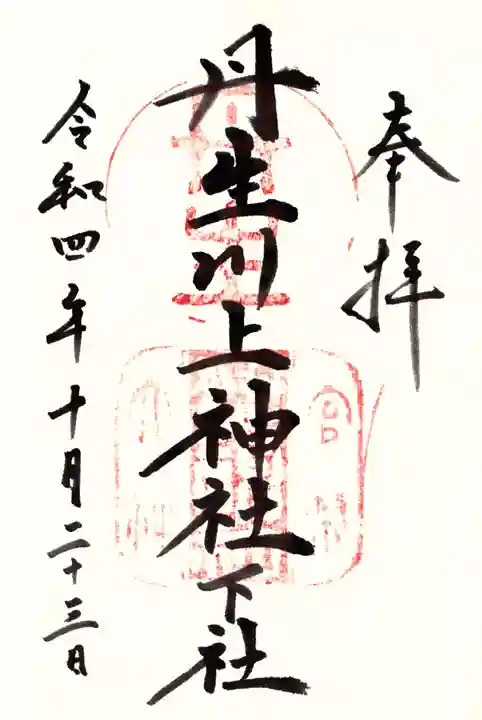 奉拝
丹生川上神社下社
令和四年十月二十三日